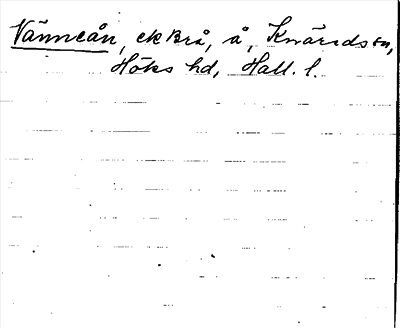 Vänneån, ek Brå, å, Knäreds sn,
Höks hd, Hall. l.